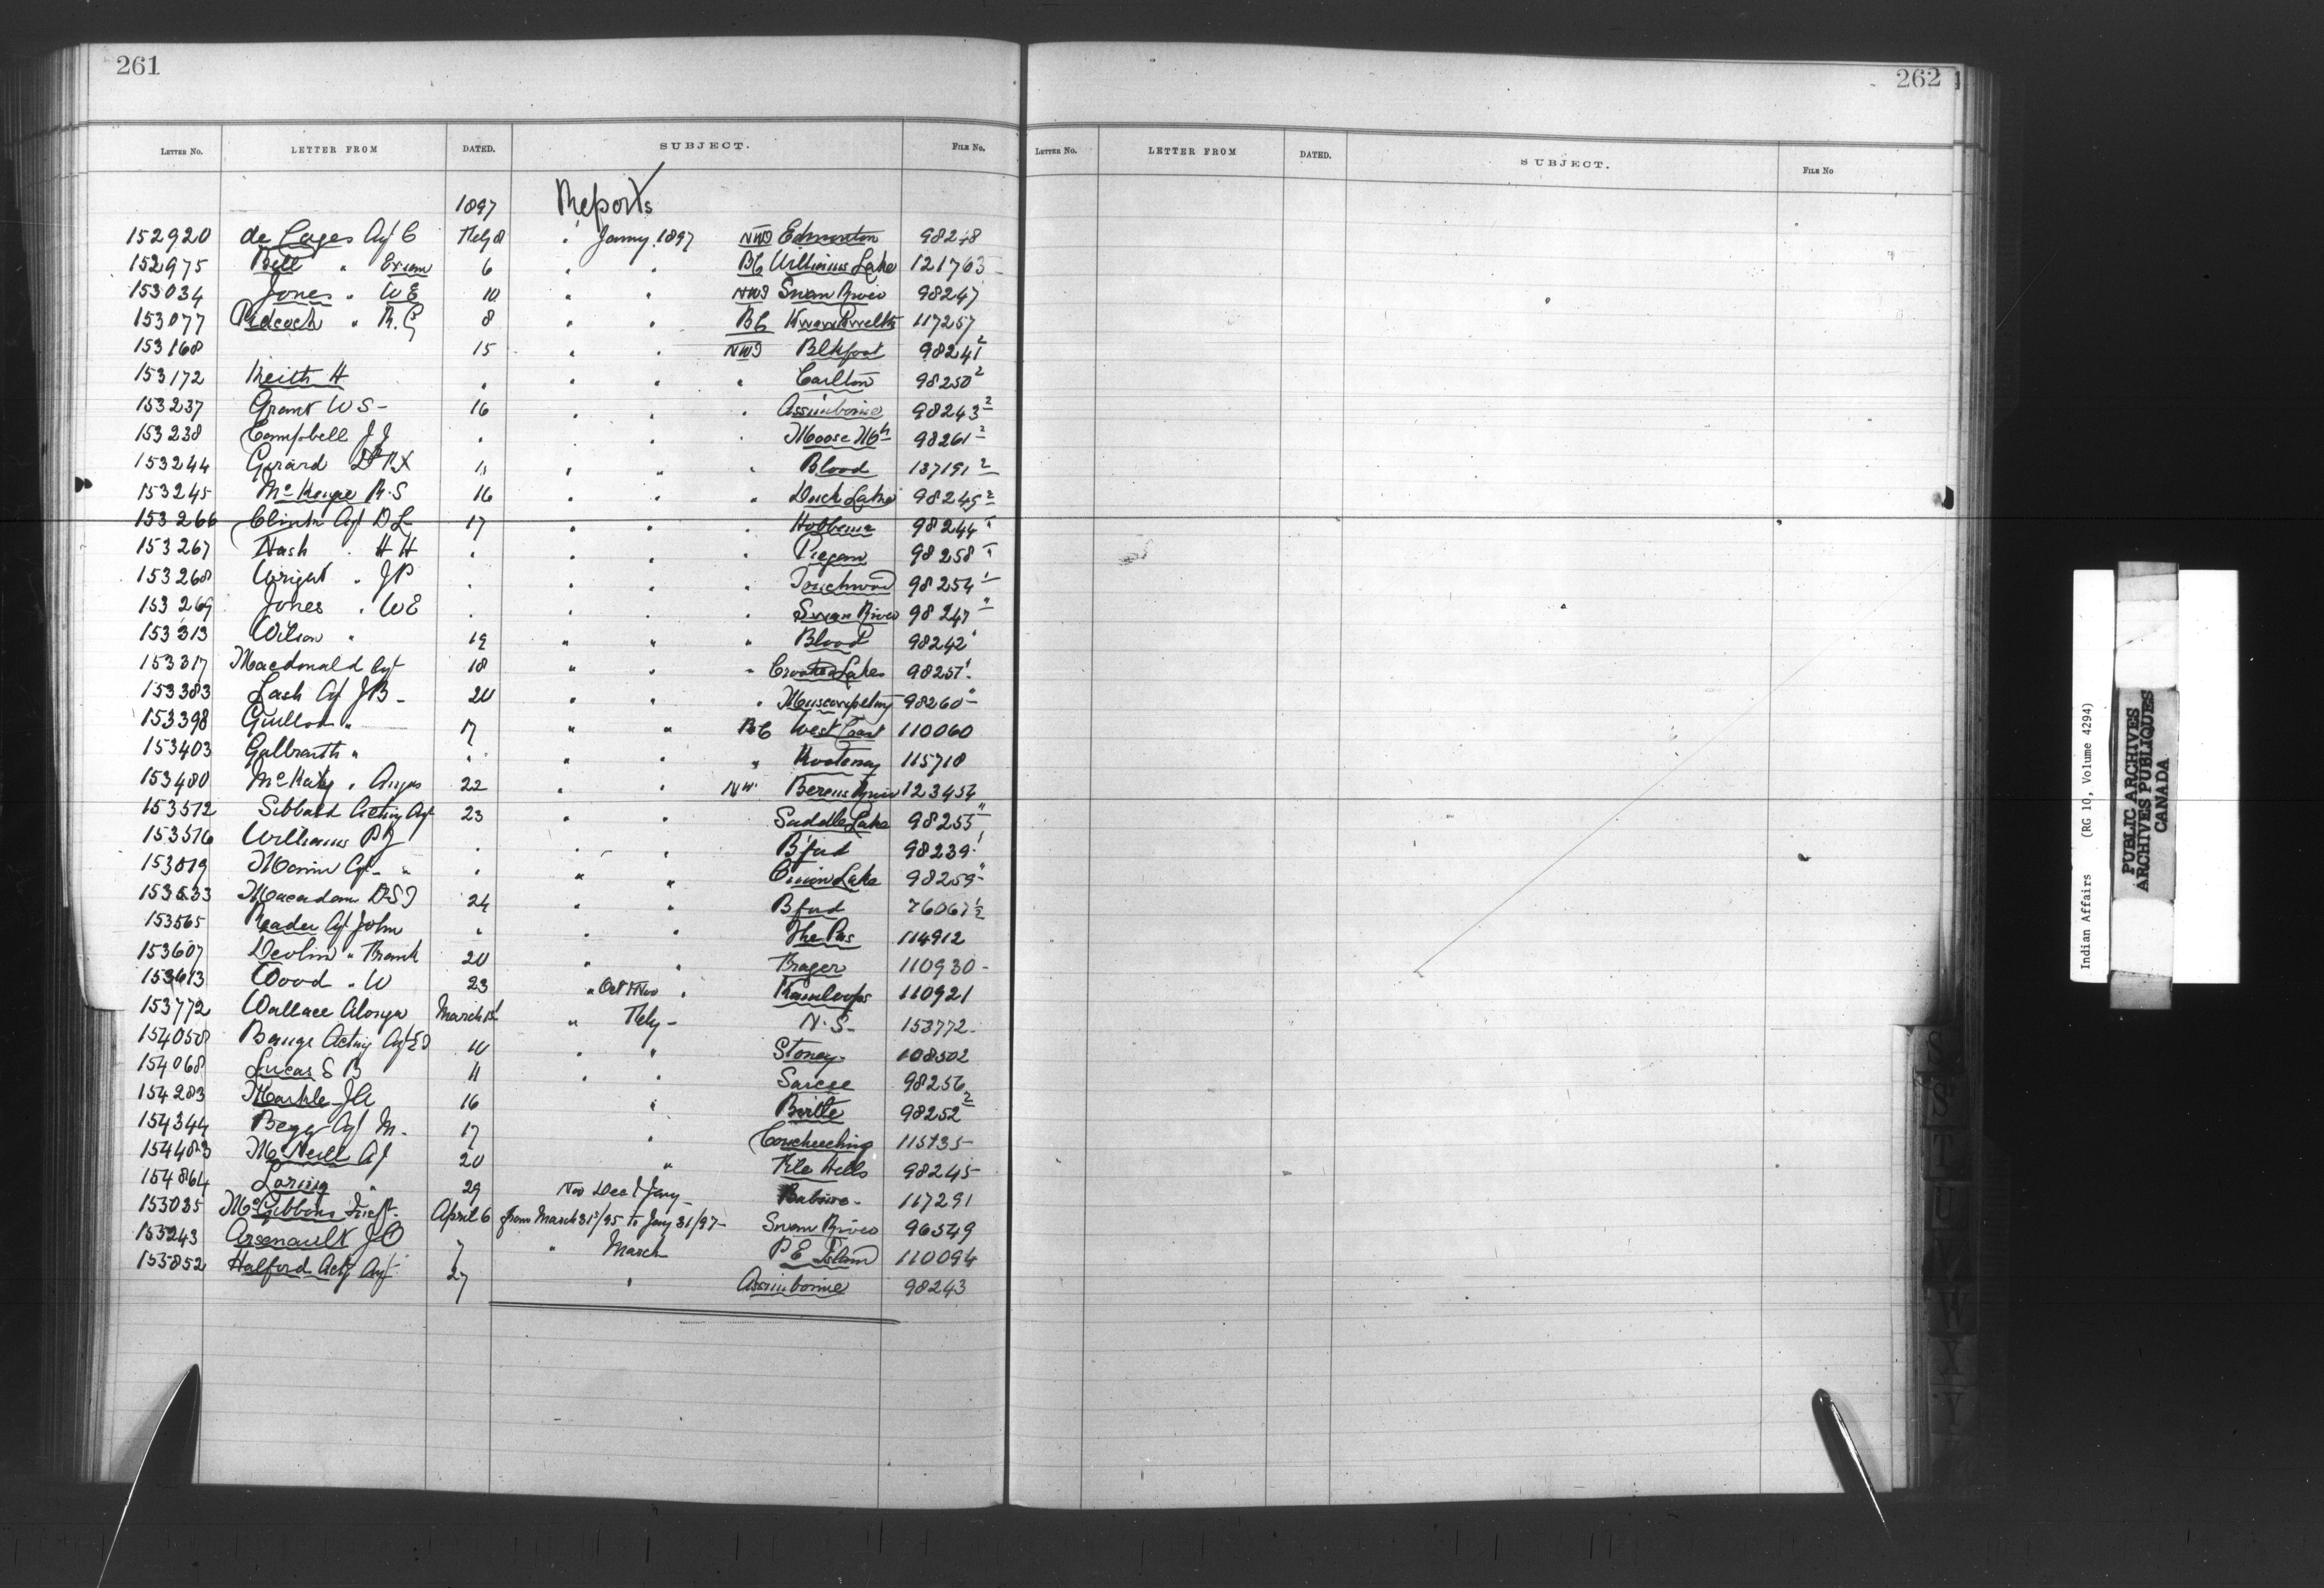 261
LETTER NO. LETTER FROM DATED. SUBJECT. FILE No.
1897 Reports
152920 de Cazes Agt C Feby 8 " Janny. 1897 NWT Edmonton 98248
152975 Bell " Ewem 6 " " BC Williams Lake 121763
153034 Jones " WE 10 " " NWT Swan River 98247
153077 Pidcock " R.G 8 " " BC 117257
153168 15 " " NWT Blkfoot 98241
153172 Keith H " " " " Carlton 98250 2
153237 Grant W S - 16 " " " Assiniboine 98243 2
153238 Campbell J J " " " " Moose Mtn 98261 2
153244 Girard Dr F X " " " " Blood 137191 2
153245 McKenzie R.S 16 " " " Duck Lake 98245 2
153266 Clink Agt D L 17 " " " Hobbema 98244
153267 Nash " H H " " " " Piegan 98258
153268 Wright " J P " " " " Touchwood 98254
153269 Jones " W E " " " " Swan River 98247 "
153313 Wilson " 19 " " " Blood 98242
153317 Macdonald Agt 18 " " " Crooked Lakes 98251
153383 Lash Agt J B - 20 " " " Muscowpetung 98260 "
153398 Guillod " 17 " " BC West Coast 110060
153403 Galbraith " " " " " Kootenay 115718
153480 McKay " Angus 22 " " NW. Berens River 123454
153512 Sibbald Acting Agt 23 " " Saddle Lake 98255 "
153516 Williams P J " " " B'ford 98239
153519 Mann Agt - " " " " Onion Lake 98259 "
153533 Macadam D S T 24 " " Bford 76067 1/2
153565 Reader Agt John " " " The Pas 114912
153607 Devlin " Frank 20 " " Fraser 110930 -
153613 Wood " W 23 " Oct & Nov " Kamloops 110921
153772 Wallace Alonzo March 1st " Feby - N.S - 153772 -
154050 Bangs Acting Agt E J 10 " " Stoney - 108502
154068 Lucas S B 11 " " Sarcee 98256
154283 Markle J A 16 " Birtle 98252 2
154344 Begg Agt M. 17 " Coucheeching 115735
154483 McNeill A J 20 " File Hills 98245
154864 Loring " 29 Nov Dec & Jany - Babine - 117291
155035 McGibbon Inspt. April 6 from March 31st/95 to Jany 31/97 - Swan River 96549
155243 Arsenault J O 7 " March P E Island 110094
155852 Halford Actg Agt 27 " Assiniboine 98243
262
LETTER NO. LETTER FROM DATED. SUBJECT. FILE NO
S
S
T
U
V
W
X
Y
Indian Affairs (RG 10, Volume 4294)
PUBLIC ARCHIVES
ARCHIVES PUBLIQUES
CANADA